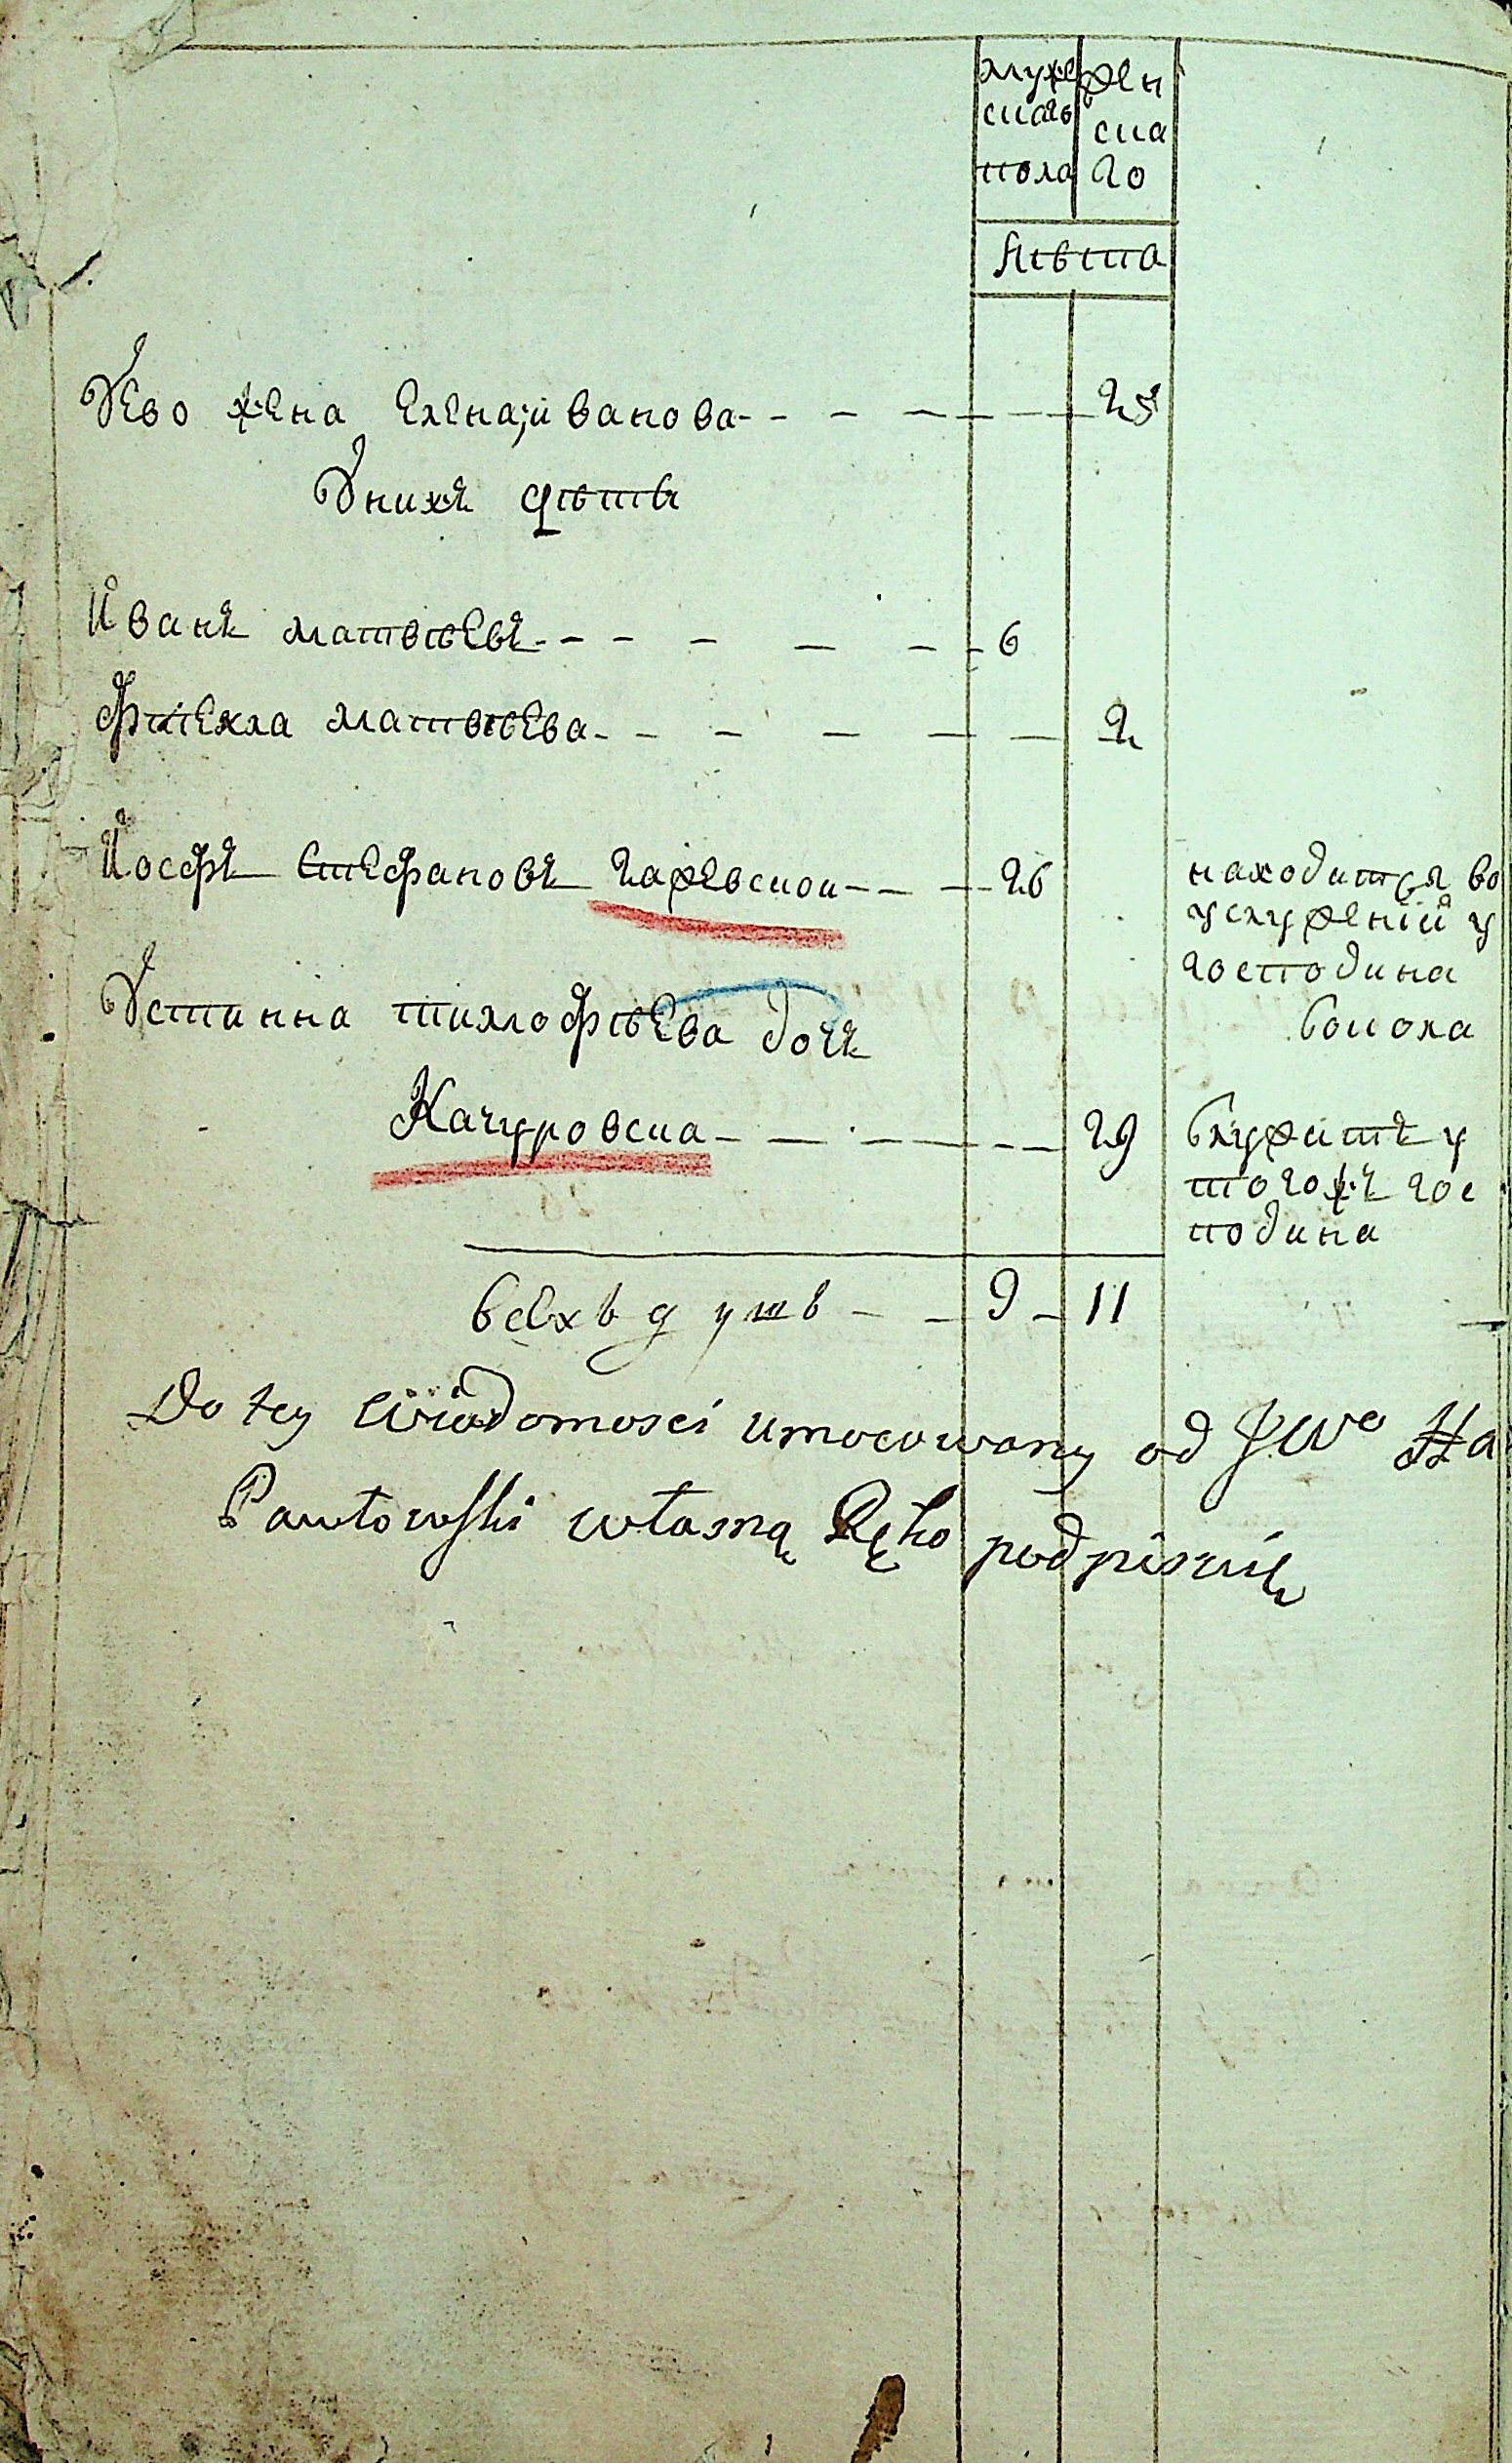 мужескаго пола
женскаго
лѣта
Уево жена елена иванова - - - - 25
Унихъ дѣти
Иванъ матвѣевъ - - - - 6
Фтекла матвѣева - - - - 2
Иосфъ Стефановъ гажевской - - - 26
находится во
услуженіи у
господина
Устинна тимофѣева дочъ
Качуровска - - - - 29
Служитъ у
тогожъ гос
подина
всехъ душъ - - 9 - 11
Do tey wiadomosci umocowany od JWo
Pawłowski własną Ręko podpisuię